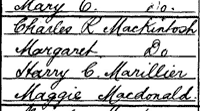 Mary C. Do.
Charles R Mackintosh
Margaret Do
Harry C. Marillier
Maggie Macdonald.